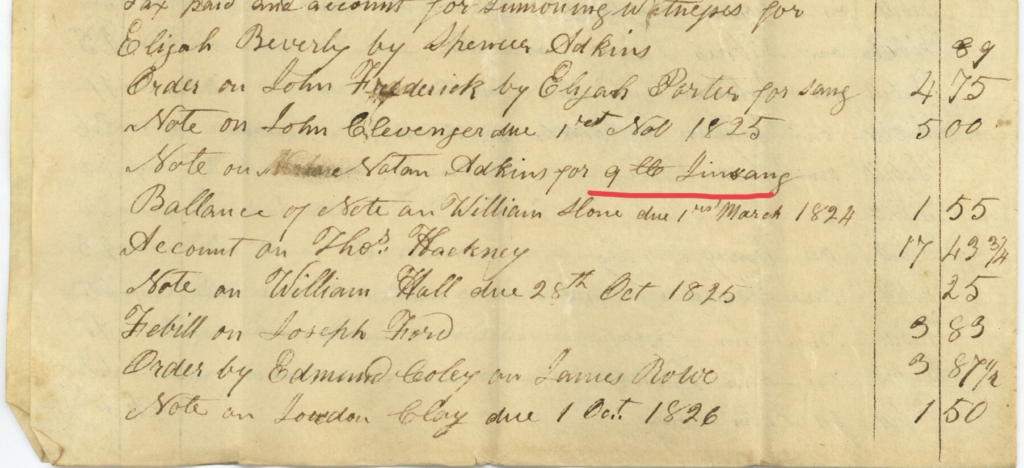 Tax paid and account for Sumoning Witnesses for
Elijah Beverly by Spencer Adkins 89
Order on John Frederick by Elijah Porter for sang 4 75
Note on John Clevenger due 1rst Nob 1825 5 00
Note on Natan Adkins for 9 lb Jinsang
Ballance of Note on William Slone due 1rst March 1824 1 55
Account on Thos. Hackney 17 43 3/4
Note on William Hall due 28th Oct 1825 25
Febill on Joseph Ford 3 83
Order by Edmund Coley on James Rowe 3 87 1/2
Note on Lowdon Clay due 1 Oct. 1826 1 50